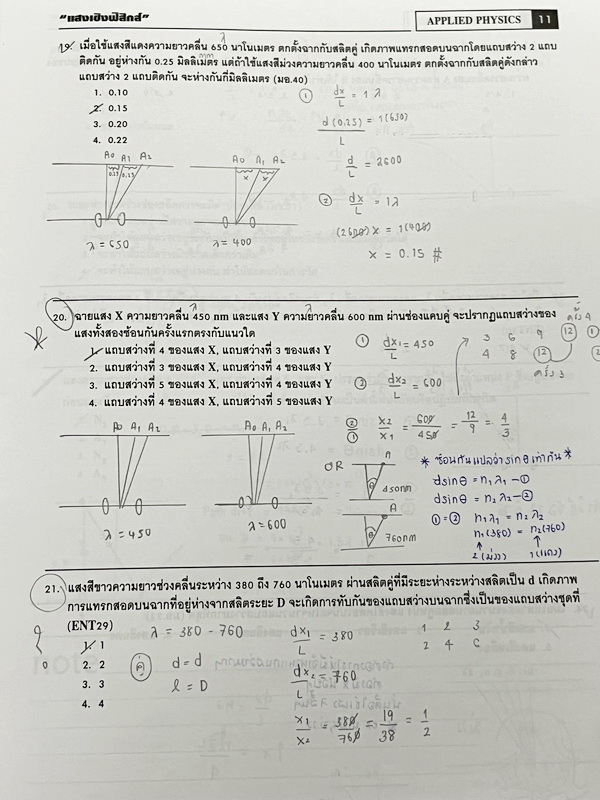 "แสงเชิงฟิสิกส์"
APPLIED PHYSICS 11
19. เมื่อใช้แสงสีแดงความยาวคลื่น 650 นาโนเมตร ตกตั้งฉากกับสลิตคู่ เกิดภาพแทรกสอดบนฉากโดยแถบสว่าง 2 แถบ
ติดกัน อยู่ห่างกัน 0.25 มิลลิเมตร แต่ถ้าใช้แสงสีม่วงความยาวคลื่น 400 นาโนเมตร ตกตั้งฉากกับสลิตคู่ดังกล่าว
แถบสว่าง 2 แถบติดกัน จะห่างกันกี่มิลลิเมตร (มอ.40)
1. 0.10
2. 0.15
3. 0.20
4. 0.22
① dx/L = 1λ
d(0.25)/L = 1(650)
d/L = 2600
② dx/L = 1λ
(2600)x = 1(400)
x = 0.15 #
A0 A1 A2
0.25 0.25
λ = 650
A0 A1 A2
x x
λ = 400
20. ฉายแสง X ความยาวคลื่น 450 nm และแสง Y ความยาวคลื่น 600 nm ผ่านช่องแคบคู่ จะปรากฏแถบสว่างของ
แสงทั้งสองซ้อนกันครั้งแรกตรงกับแนวใด
1. แถบสว่างที่ 4 ของแสง X, แถบสว่างที่ 3 ของแสง Y
2. แถบสว่างที่ 3 ของแสง X, แถบสว่างที่ 4 ของแสง Y
3. แถบสว่างที่ 5 ของแสง X, แถบสว่างที่ 4 ของแสง Y
4. แถบสว่างที่ 4 ของแสง X, แถบสว่างที่ 5 ของแสง Y
① dx1/L = 450
② dx2/L = 600
3 6 9 12
4 8 12
ครั้ง 3
②/① x2/x1 = 600/450 = 12/9 = 4/3
A0 A1 A2
λ = 450
A0 A1 A2
λ = 600
OR
A
θ
450nm
A
θ
760nm
* ซ้อนกันแปลว่า sin θ เท่ากัน *
dsinθ = n1λ1 - ①
dsinθ = n2λ2 - ②
① = ② n1λ1 = n2λ2
n1(380) = n2(760)
2 (ม่วง) 1 (แดง)
21. แสงสีขาวความยาวช่วงคลื่นระหว่าง 380 ถึง 760 นาโนเมตร ผ่านสลิตคู่ที่มีระยะห่างระหว่างสลิตเป็น d เกิดภาพ
การแทรกสอดบนฉากที่อยู่ห่างจากสลิตระยะ D จะเกิดการทับกันของแถบสว่างบนฉากซึ่งเป็นของแถบสว่างชุดที่
(ENT29)
1. 1
2. 2
3. 3
4. 4
λ = 380 - 760
คู่
d = d
l = D
dx1/L = 380
dx2/L = 760
x1/x2 = 380/760 = 19/38 = 1/2
1 2 3
2 4 6